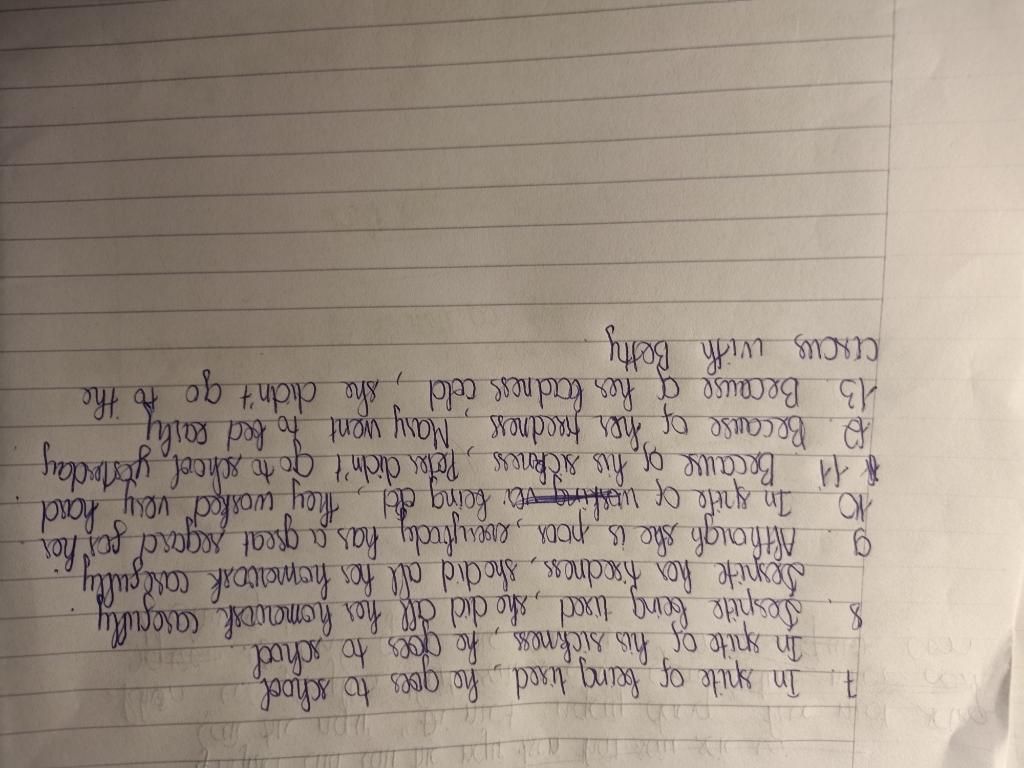 7. In spite of being tired he goes to school
In spite of his sickness, he goes to school
8. Despite being tired, she did all her homework carefully
Despite her tiredness, she did all her homework carefully
9. Although she is poor, everybody has a great regard for her
10. In spite of being old, they worked very hard
11. Because of his sickness, Peter didn't go to school yesterday
12. Because of her tiredness, Mary went to bed early
13. Because of her badness cold, she didn't go to the
circus with Betty